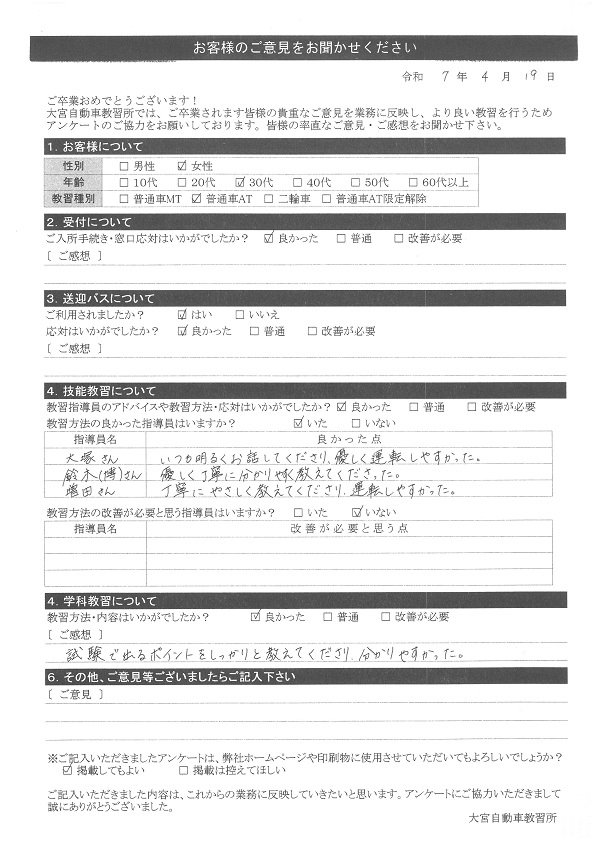 お客様のご意見をお聞かせください
令和 7 年 4 月 19 日
ご卒業おめでとうございます！
大宮自動車教習所では、ご卒業されます皆様の貴重なご意見を業務に反映し、より良い教習を行うため
アンケートのご協力をお願いしております。皆様の率直なご意見・ご感想をお聞かせ下さい。
1. お客様について
性別 □ 男性 ☑ 女性
年齢 □ 10代 □ 20代 ☑ 30代 □ 40代 □ 50代 □ 60代以上
教習種別 □ 普通車MT ☑ 普通車AT □ 二輪車 □ 普通車AT限定解除
2. 受付について
ご入所手続き・窓口応対はいかがでしたか？ ☑ 良かった □ 普通 □ 改善が必要
[ ご感想 ]
3. 送迎バスについて
ご利用されましたか？ ☑ はい □ いいえ
応対はいかがでしたか？ ☑ 良かった □ 普通 □ 改善が必要
[ ご感想 ]
4. 技能教習について
教習指導員のアドバイスや教習方法・応対はいかがでしたか？ ☑ 良かった □ 普通 □ 改善が必要
教習方法の良かった指導員はいますか？ ☑ いた □ いない
指導員名 良かった点
大塚さん いつも明るくお話してくださり、優しく運転しやすかった。
鈴木(博)さん 優しく丁寧に分かりやすく教えてくださった。
増田さん 丁寧にやさしく教えてくださり、運転しやすかった。
教習方法の改善が必要と思う指導員はいますか？ □ いた ☑ いない
指導員名 改善が必要と思う点
4. 学科教習について
教習方法・内容はいかがでしたか？ ☑ 良かった □ 普通 □ 改善が必要
[ ご感想 ]
試験で出るポイントをしっかりと教えてくださり、分かりやすかった。
6. その他、ご意見等ございましたらご記入下さい
[ ご意見 ]
※ご記入いただきましたアンケートは、弊社ホームページや印刷物に使用させていただいてもよろしいでしょうか？
☑ 掲載してもよい □ 掲載は控えてほしい
ご記入いただきました内容は、これからの業務に反映していきたいと思います。アンケートにご協力いただきまして
誠にありがとうございました。
大宮自動車教習所